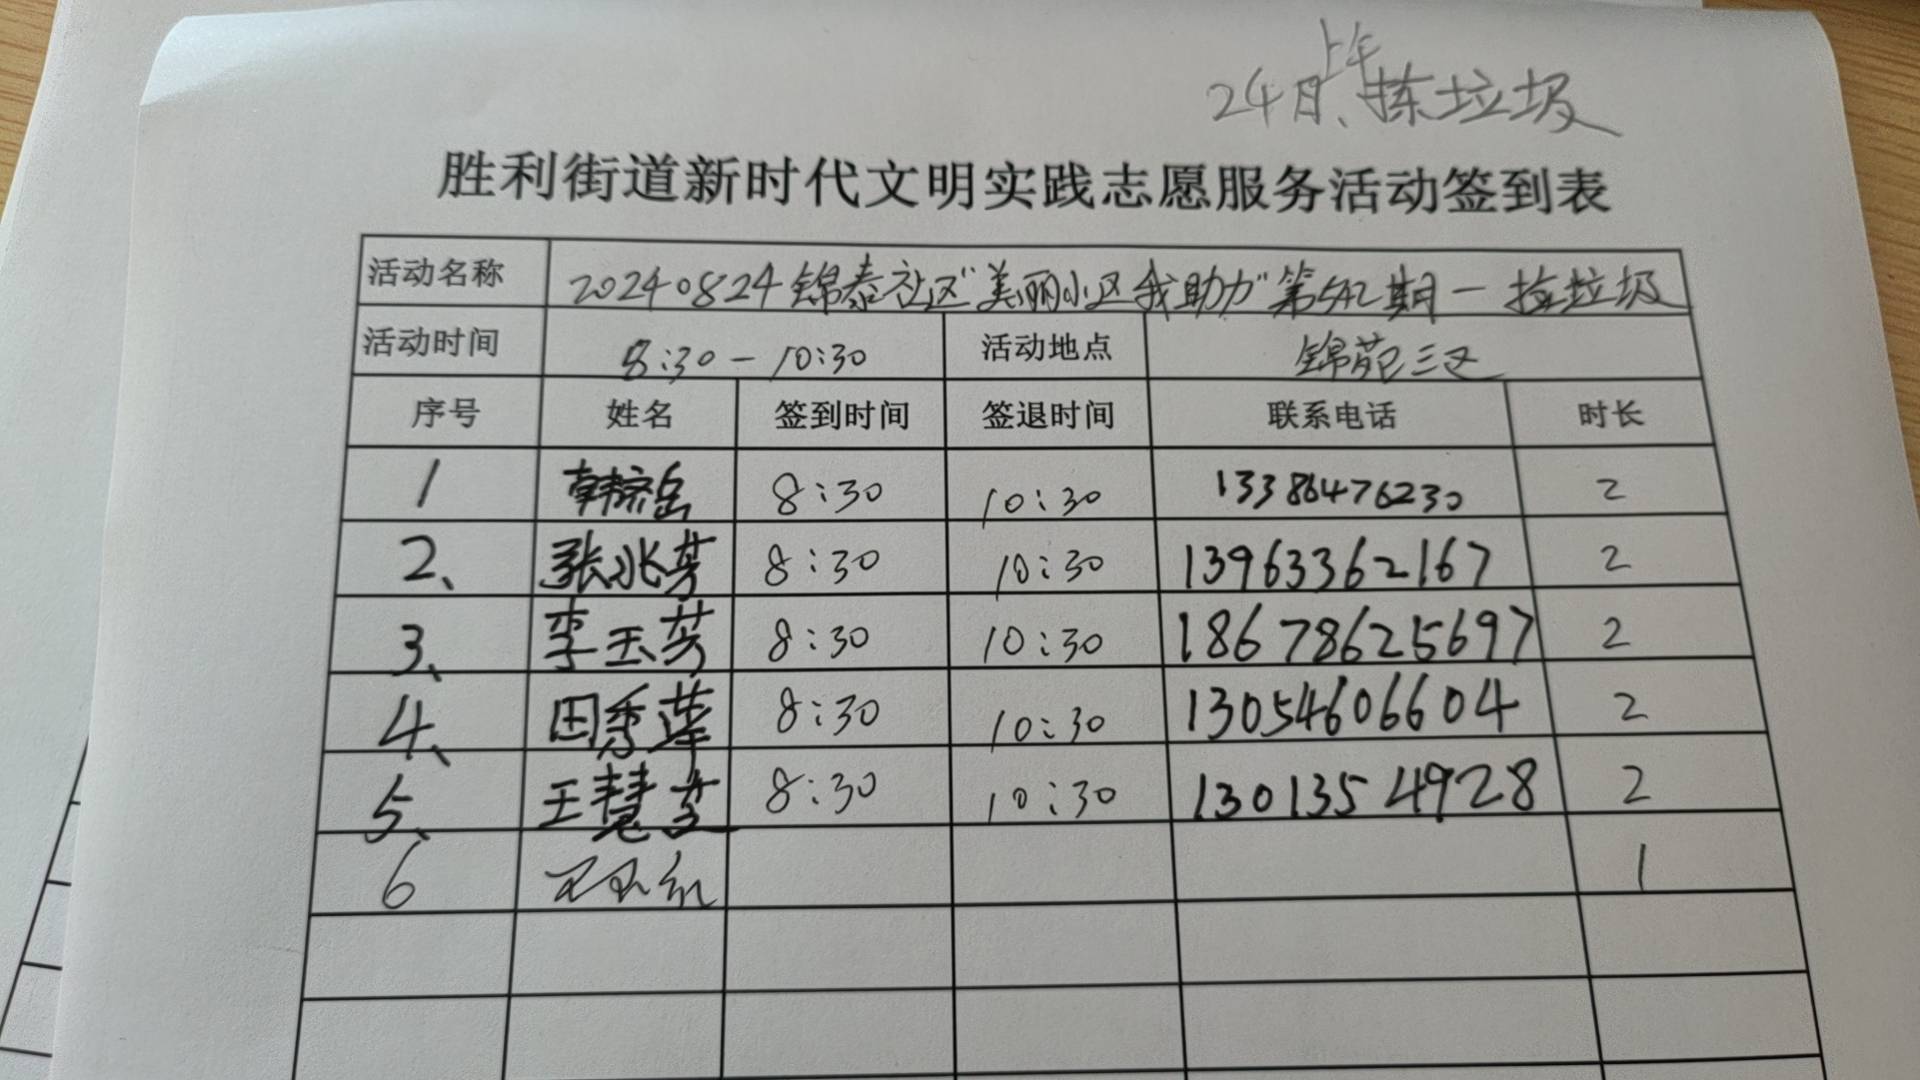 上午
24日、拣垃圾
胜利街道新时代文明实践志愿服务活动签到表
活动名称 20240824锦泰社区"美丽小区我助力"第542期一捡垃圾
活动时间 8:30-10:30 活动地点 锦苑三区
序号 姓名 签到时间 签退时间 联系电话 时长
1 韩岳 8:30 10:30 13386476230 2
2、 张兆芳 8:30 10:30 13963362167 2
3、 李玉芳 8:30 10:30 18678625697 2
4、 田秀莲 8:30 10:30 13054606604 2
5、 王慧芝 8:30 10:30 1301354928 2
6 1